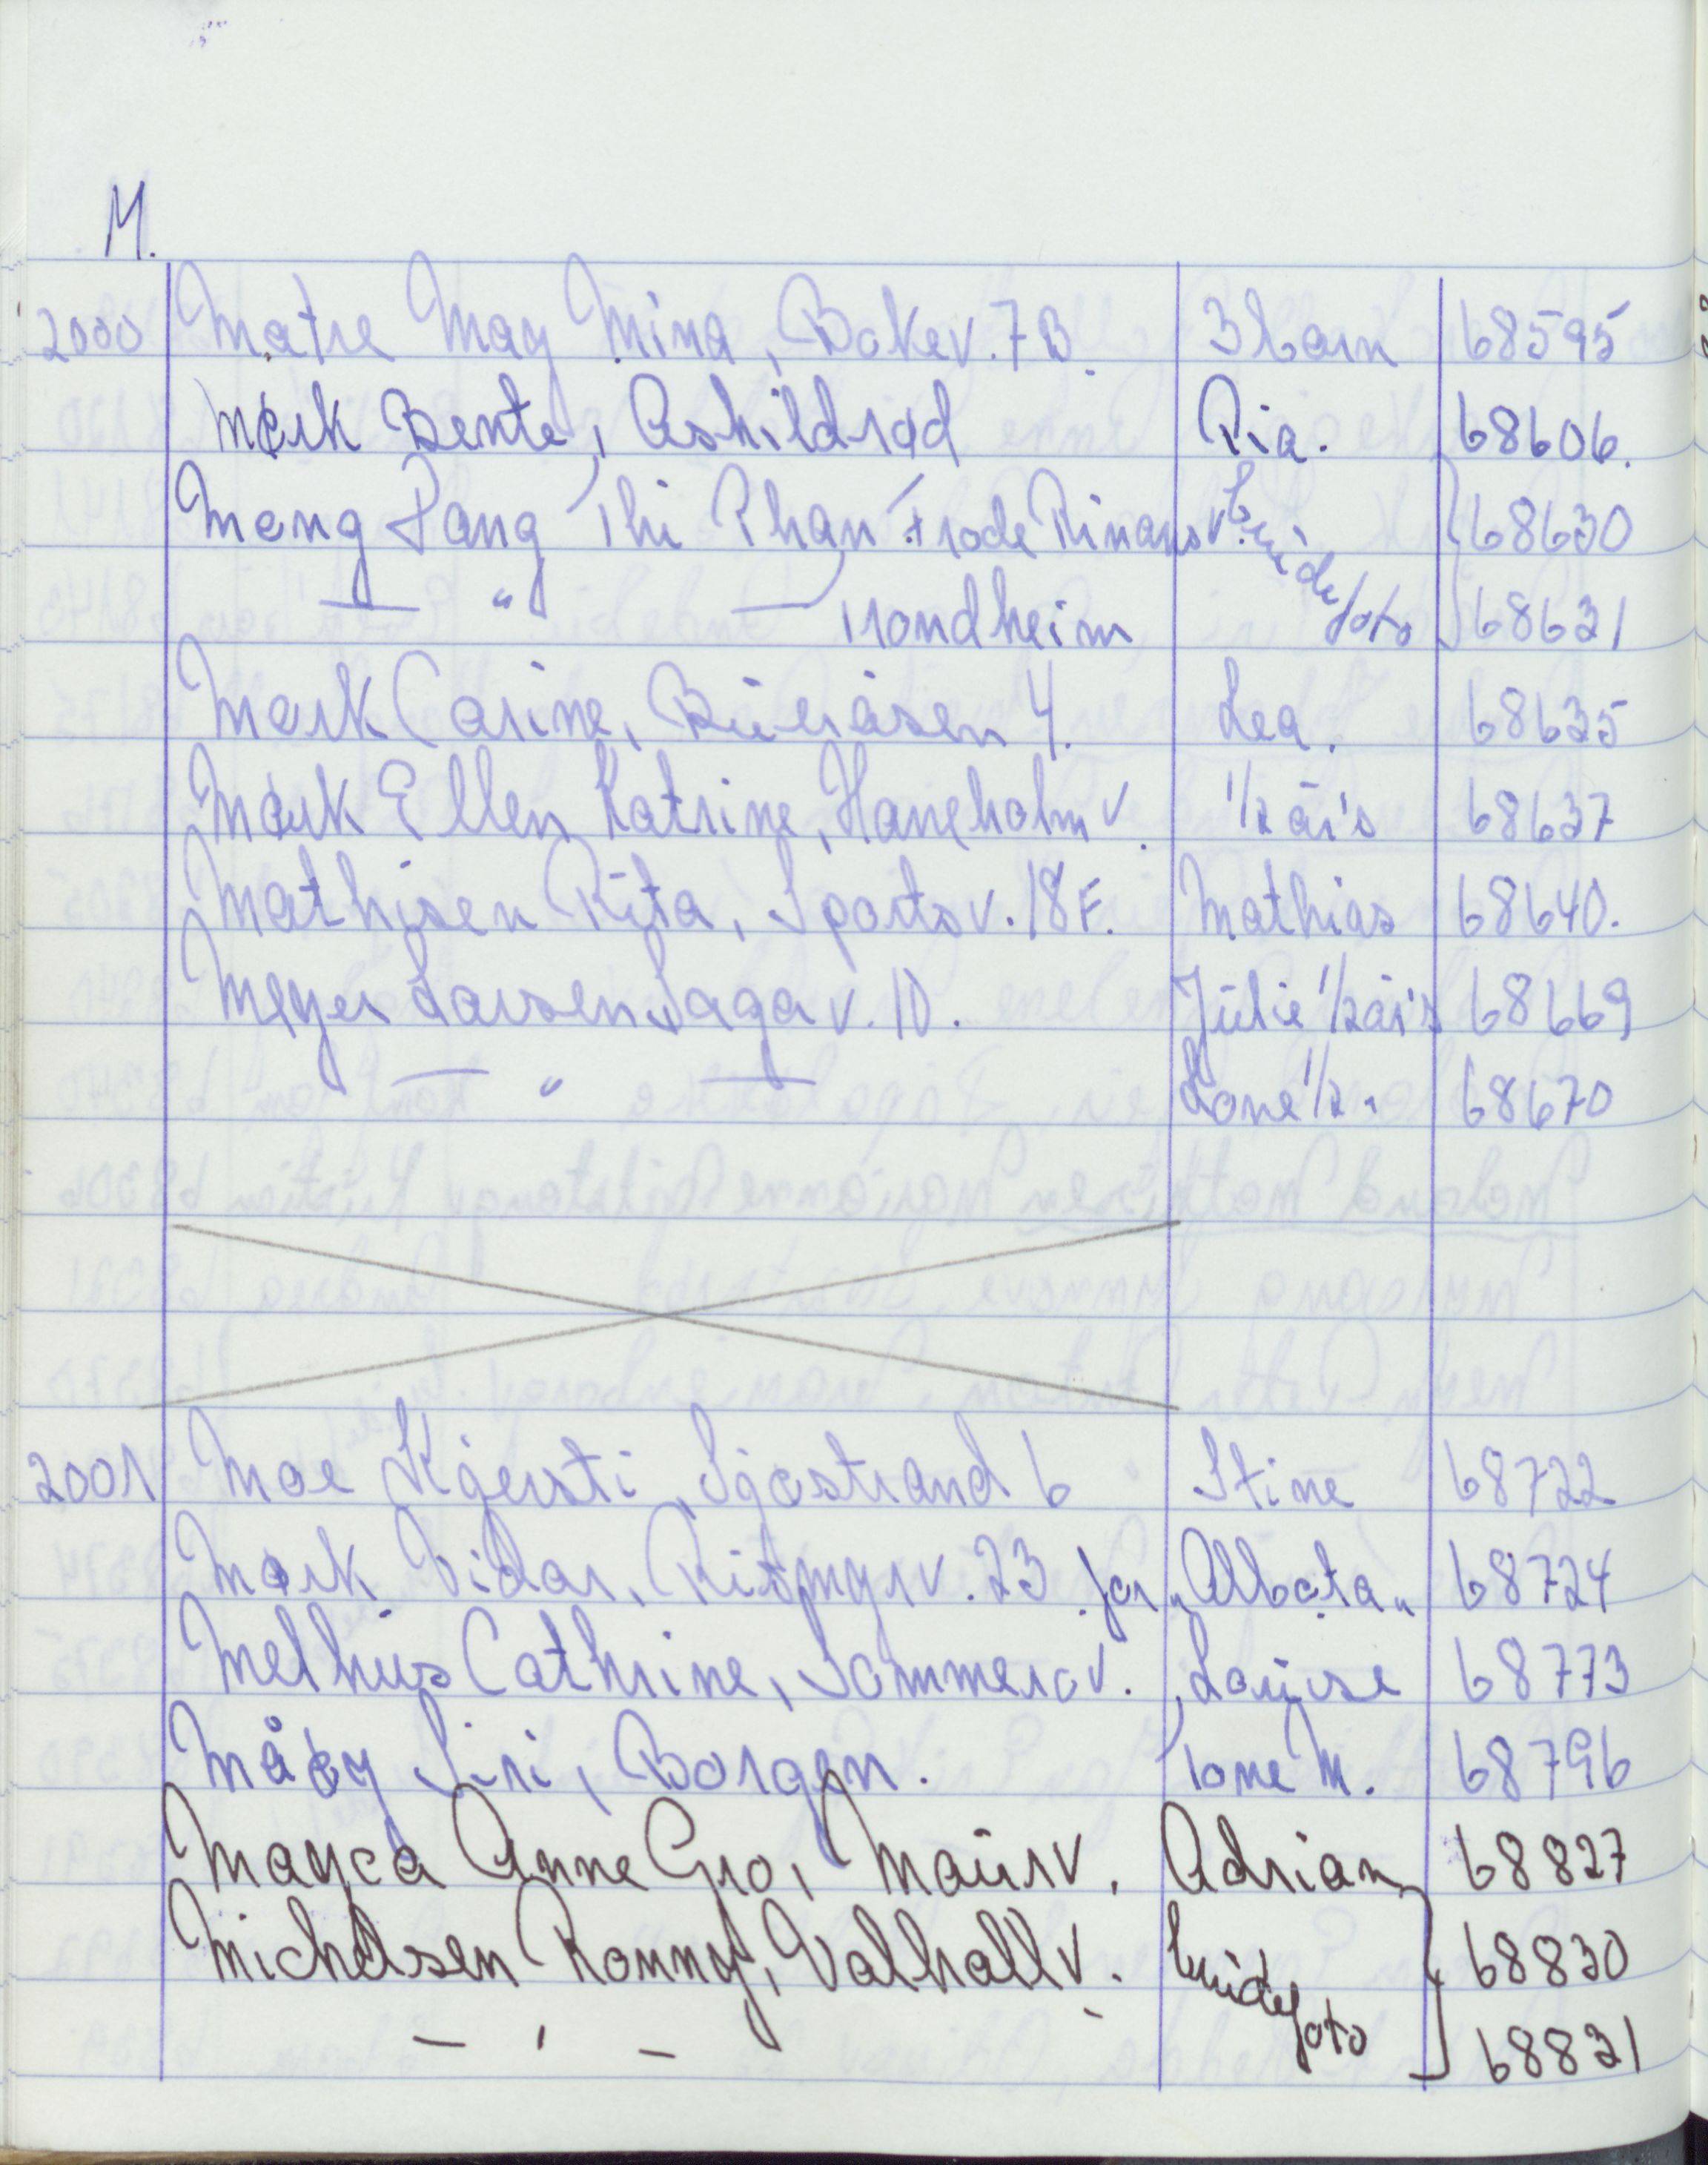 M.
2000 Matre May Mina, Bøkev. 7B. 3 barn 68595
Mørk Bente, Åshildrød Pia. 68606.
Meng Pang Thi Phan Frode Rinansv. brudefoto 68630
— " — Trondheim 68631
Mørk Carine, Bueråsen 4. Lea. 68635
Mørk Ellen Katrine, Haneholmv. 1/2 år's 68637
Mathisen Rita, Sportsv. 18F. Mathias 68640.
Meyer Larsen Sagav. 10. Julie 1/2 år's 68669
— " — Lone 1/2 " 68670
2001 Moe Kjersti, Sjøstrand 6 Stine 68722
Mørk Vidar, Ritmyrv. 23 for "Albota" 68724
Melhus Cathrine, Sommerov. Louise 68773
Måby Siri, Borgen. Tone M. 68796
Mayca Anne Gro, Maurv. Adrian 68827
Michelsen Ronny, Valhallv. brudefoto 68830
— " — 68831